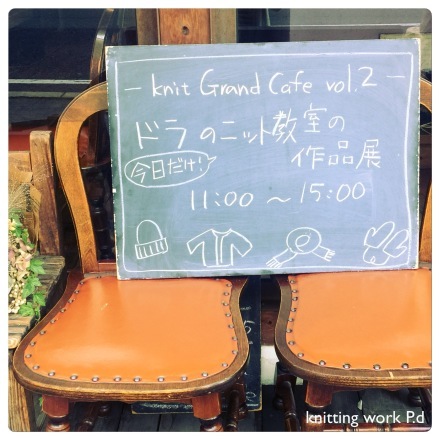 — knit Grand Cafe vol.2 —
ドラのニット教室の
作品展
今日だけ!
11:00 ~ 15:00
knitting work P.d